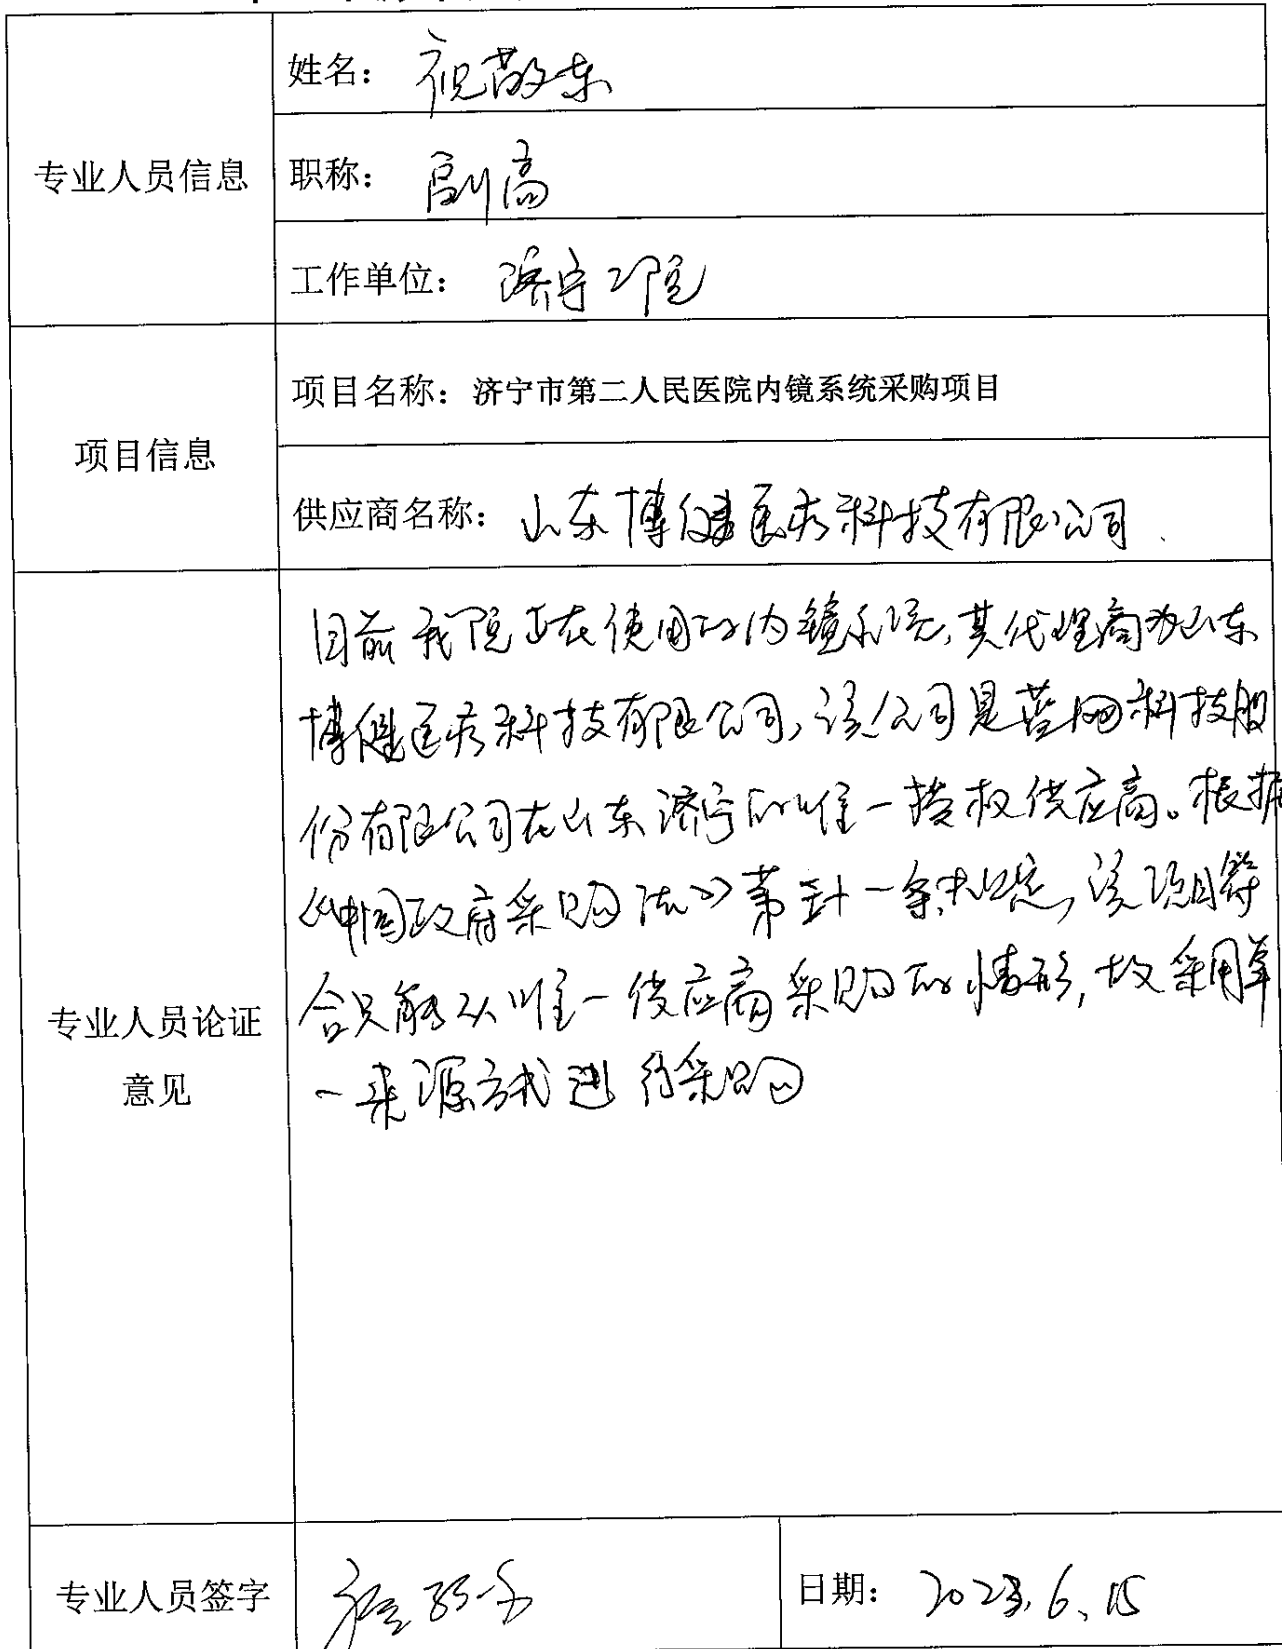 姓名：祝敬东
专业人员信息
职称：副高
工作单位：济宁二院
项目名称：济宁市第二人民医院内镜系统采购项目
项目信息
供应商名称：山东博健医疗科技有限公司
目前我院正在使用的内镜系统，其代理商为山东
博健医疗科技有限公司，该公司是蓝网科技股
份有限公司在山东济宁的唯一授权供应商。根据
《中国政府采购法》第三十一条规定，该项目符
合只能从唯一供应商采购的情形，故采用单
一来源方式进行采购
专业人员论证
意见
专业人员签字
日期：2023.6.15